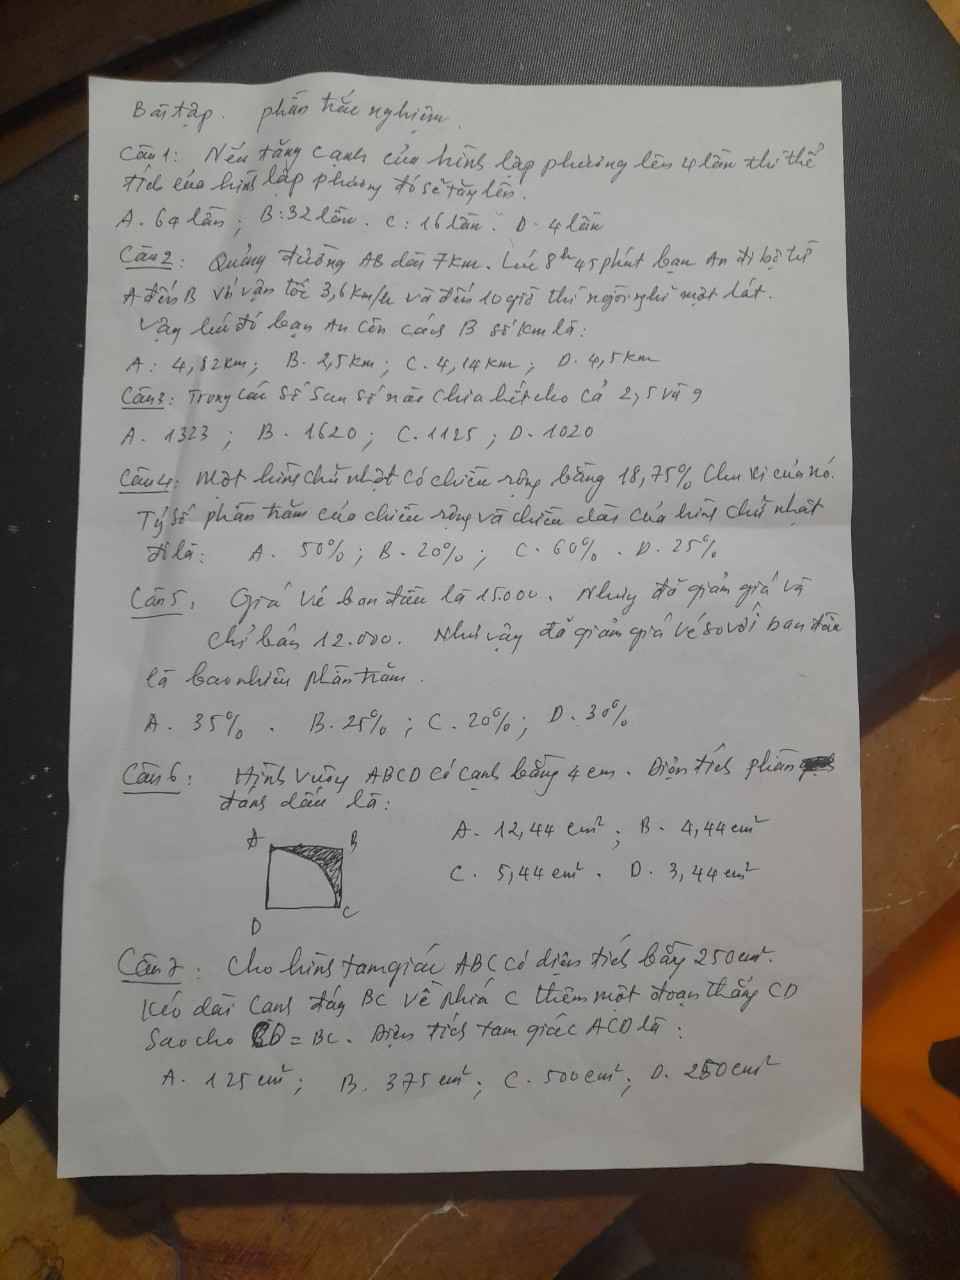 Bài tập. phần trắc nghiệm.
Câu 1: Nếu tăng cạnh của hình lập phương lên 4 lần thì thể
tích của hình lập phương đó sẽ tăng lên.
A. 64 lần; B: 32 lần. C: 16 lần. D. 4 lần
Câu 2: Quảng đường AB dài 7km. Lúc 8h 45 phút bạn An đi bộ từ
A đến B với vận tốc 3,6km/h và đến 10 giờ thì ngồi nghỉ một lát.
Vậy lúc đó bạn An còn cách B số km là:
A: 4,82km; B. 2,5km; C. 4,14km; D. 4,5km
Câu 3: Trong các số sau số nào chia hết cho cả 2, 5 và 9
A. 1323; B. 1620; C. 1125; D. 1020
Câu 4: Một hình chữ nhật có chiều rộng bằng 18,75% Chu vi của nó.
Tỷ số phần trăm của chiều rộng và chiều dài của hình chữ nhật
đó là: A. 50%; B. 20%; C. 60%. D. 25%
Câu 5, Giá vé ban đầu là 15.000. Nhưng đã giảm giá và
chỉ bán 12.000. Như vậy đã giảm giá vé so với ban đầu
là bao nhiêu phần trăm.
A. 35%. B. 25%; C. 20%; D. 30%
Câu 6: Hình vuông ABCD có cạnh bằng 4 cm. Diện tích phần
đánh dấu là:
A. 12,44 cm²; B. 4,44 cm²
C. 5,44 cm². D. 3,44 cm²
A B
D C
Câu 7: Cho hình tam giác ABC có diện tích bằng 250cm².
Kéo dài Cạnh đáy BC về phía C thêm một đoạn thẳng CD
Sao cho CD = BC. Diện tích tam giác ACD là:
A. 125 cm²; B. 375 cm²; C. 500 cm²; D. 250 cm²